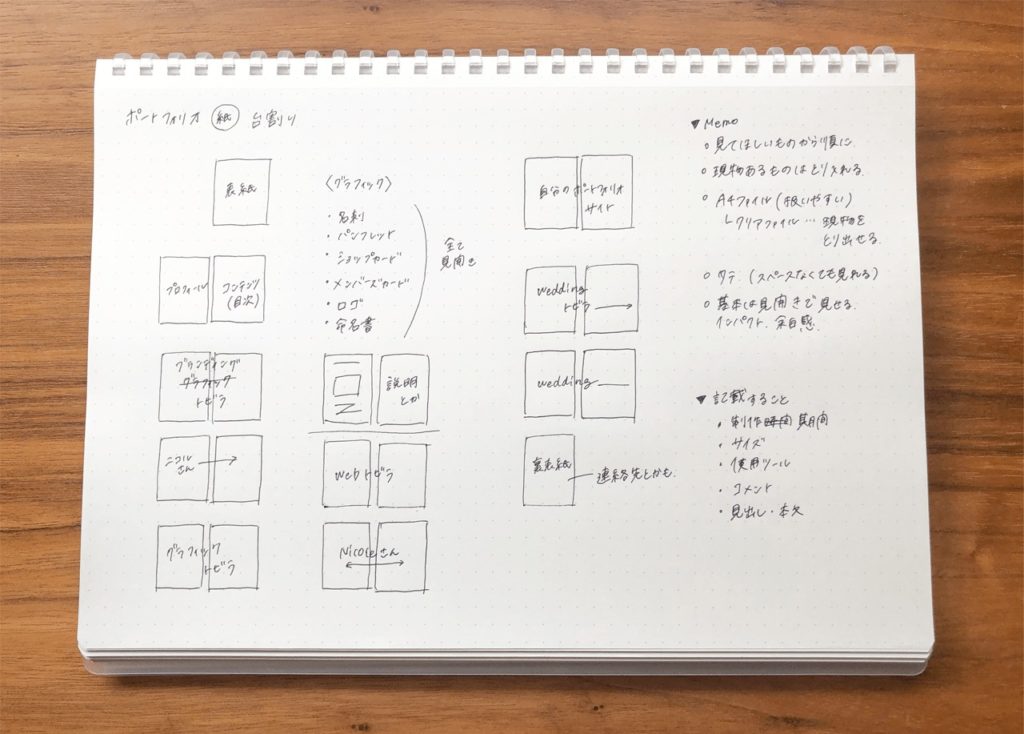 ポートフォリオ 紙 台割り
表紙
プロフィール
コンテンツ
(目次)
ブランディング
グラフィック
トビラ
ニコル
さん
グラフィック
トビラ
〈グラフィック〉
・名刺
・パンフレット
・ショップカード
・メンバーズカード
・ロゴ
・命名書
全て
見開き
説明
とか
Webトビラ
Nicoleさん
自分のポートフォリオ
サイト
wedding
トビラ
wedding
裏表紙
連絡先とかも.
▼ Memo
○ 見てほしいものから順に.
○ 現物あるものはとり入れる.
○ A4ファイル(扱いやすい)
└クリアファイル… 現物を
とり出せる.
○ タテ.(スペースなくても見れる)
○ 基本は見開きで見せる.
インパクト. 余白感.
▼ 記載すること
・制作時間 期間
・サイズ
・使用ツール
・コメント
・見出し・本文